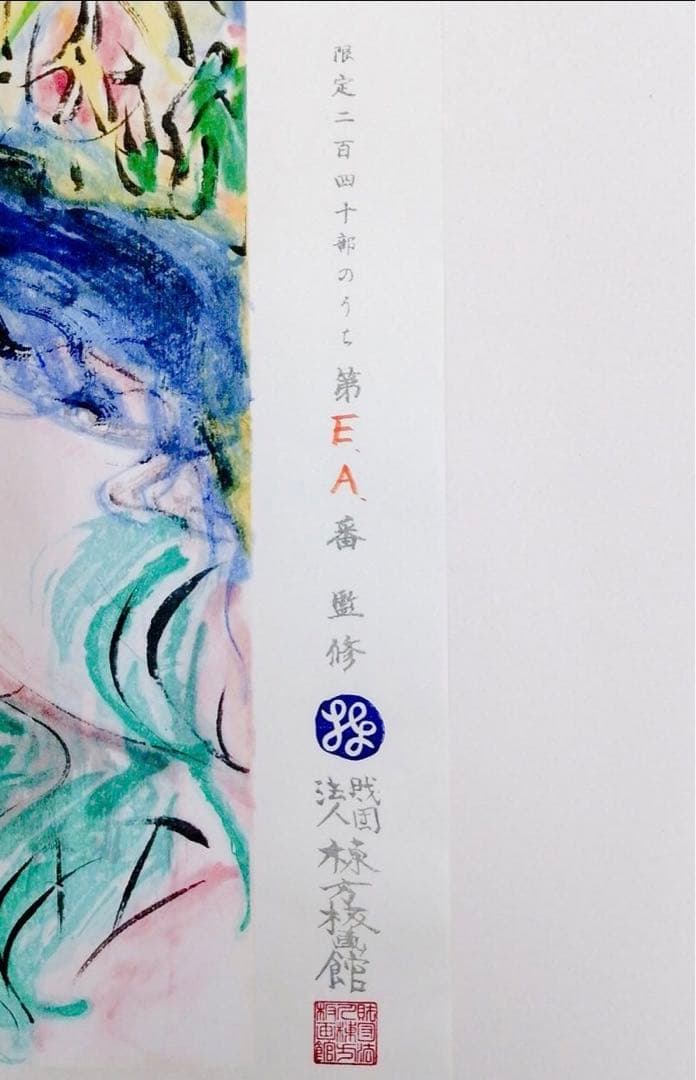 限定二百四十部のうち第E.A.番 監修
財団法人棟方板画館
財団法人棟方板画館